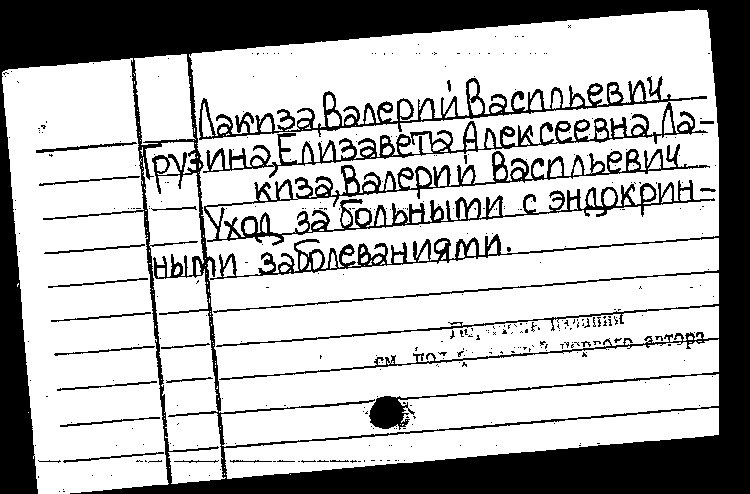 Лакиза, Валерий Васильевич.
Грузина, Елизавета Алексеевна, Ла-
киза, Валерий Васильевич.
Уход за больными с эндокрин-
ными заболеваниями.
изданий
см. под первого автора